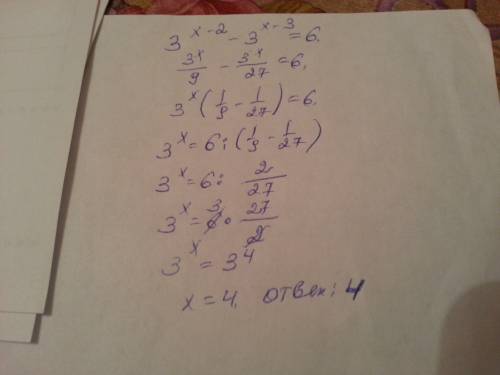 3^{x-2} - 3^{x-3} = 6.
\frac{3^x}{9} - \frac{3^x}{27} = 6.
3^x (\frac{1}{9} - \frac{1}{27}) = 6.
3^x = 6 : (\frac{1}{9} - \frac{1}{27})
3^x = 6 : \frac{2}{27}
3^x = \cancel{6}^3 · \frac{27}{\cancel{2}}
3^x = 3^4
x = 4. ответ: 4